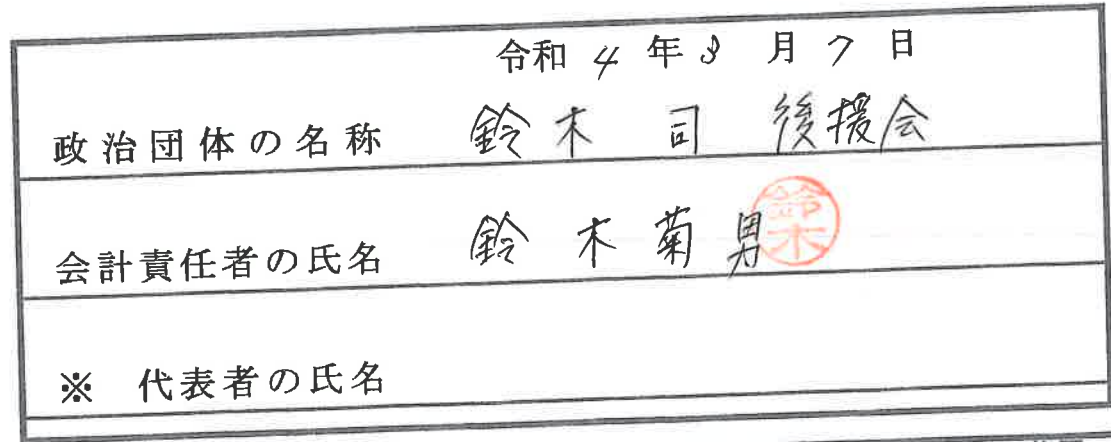 令和 4 年 3 月 7 日
政治団体の名称 鈴木 司 後援会
会計責任者の氏名 鈴木菊男 鈴木
※ 代表者の氏名